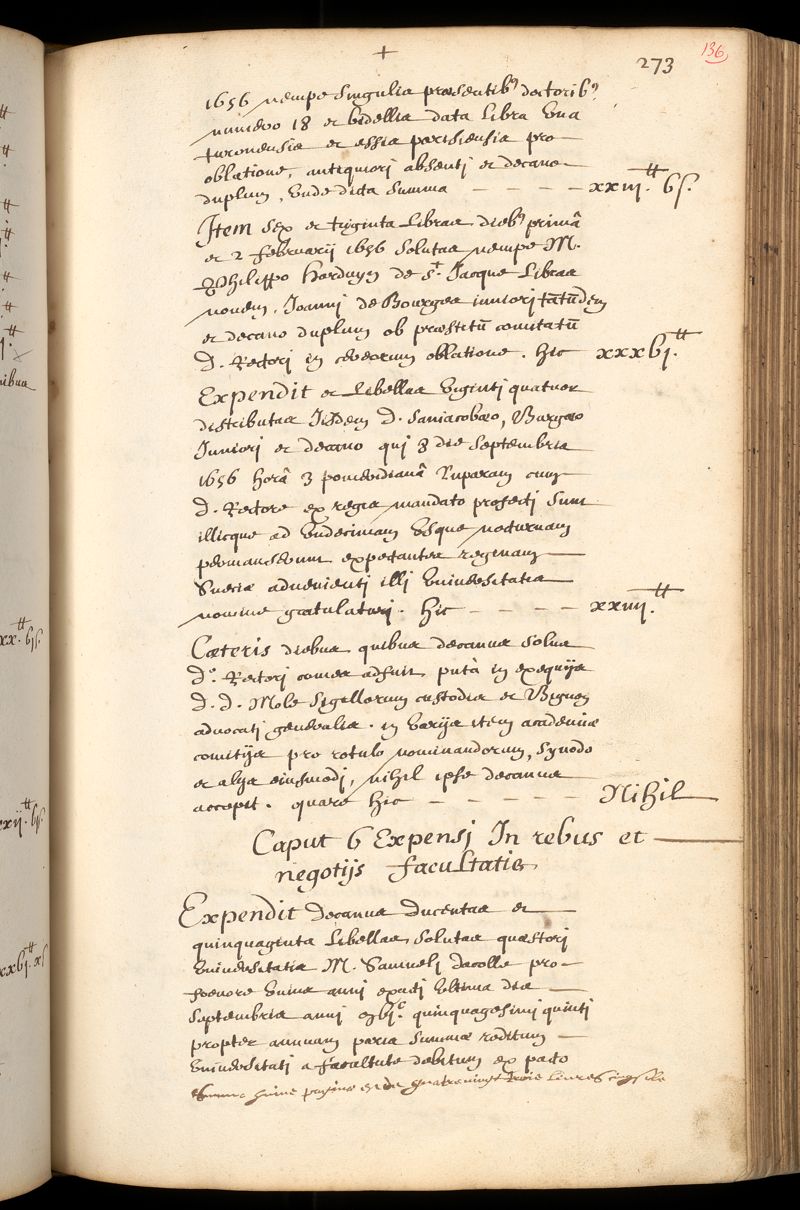 +
273
136
1656 nempe singulis præsentib⁹ doctorib⁹
numero 18 et bidellis data libra una
turonensis et assis parisiensis pro
oblatione, antiquiori absenti et decano
duplum, unde dicta summa — — — — xxiij.ᵗᵗ 6ſ.
Item sex et triginta libras dieb⁹ primâ
et 2 februarij 1656 solutas nempe M.
Philippo Harduyn de Sᵗ. Jacque libras
novem, Joanni de Bourges iuniori tātūdem
et decano duplum ob præstitū comitatū
D. Rectori in cereorum oblatione. hic xxxvj.ᵗᵗ
Expendit et libellas viginti quatuor
distributas iisdem D. Saniacobæo, Burgæo
Juniori et decano qui 8 die septembris
1656 horâ 3 pomeridianâ Ruparam cum
D. Rectore ex regis mandato profecti sunt
illicque ad undecimam usque nocturnam
permanserunt expectantes reginam
Sueciæ advenienti illi universitatis
nomine gratulaturi. hic — — — — xxiiij.ᵗᵗ
Cæteris diebus quibus decanus solus
D.ᵒ Rectori comes adfuit putà in exequijs
D. D. Mole sigillorum custodis et Bignon
advocati generalis. in varijs item academiæ
comitijs pro rotulo nominandorum, synodo
et alijs eiusmodi, nihil ipse decanus
accepit. quare hic — — — — Nihil
Caput 6 Expensi In rebus et
negotijs facultatis
Expendit decanus ducentas et
quinquaginta libellas solutas quæstori
universitatis M. Samueli dacolle pro
foenore unius anni exacti ultima die
septembris anni quinquagesimi quinti
propter annuum paris summæ reditum
universitati a facultate debitum ex pacto
Summa huius paginæ est de quatrevingt trois livres six sols